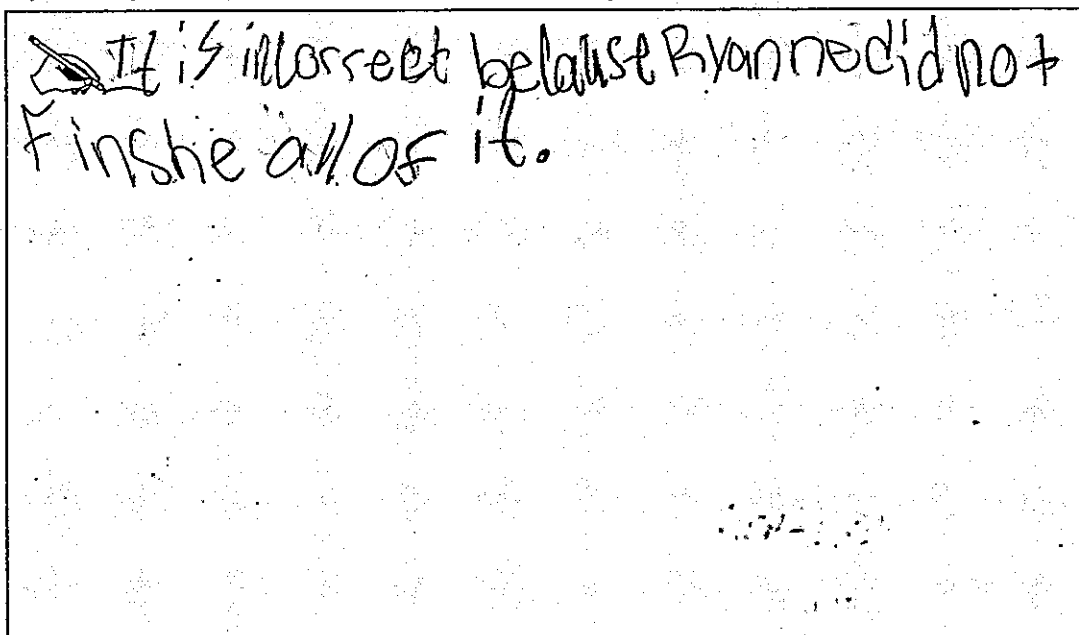 It is incorrect because Ryanne did not
Finshe all of it.